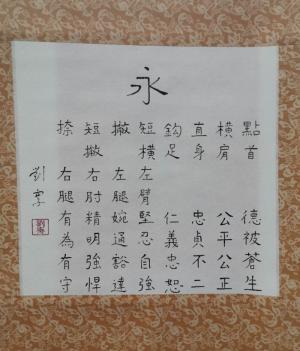 永
點首 德被蒼生
橫肩 公平公正
直身 忠貞不二
鈎足 仁義忠恕
短橫左臂堅忍自強
撇 左腿婉通豁達
短撇右肘精明強悍
捺 右腿有為有守
劉